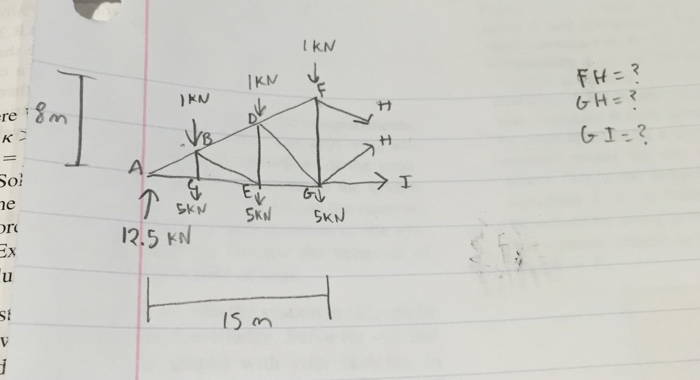 1KN
1KN
1KN
FH = ?
GH = ?
GI = ?
8m
F
H
D
B
H
A
C
E
G
I
5KN
5KN
5KN
12.5 KN
15 m
ere
κ >
=
Sol
ne
orc
Ex
lu
st
v
d